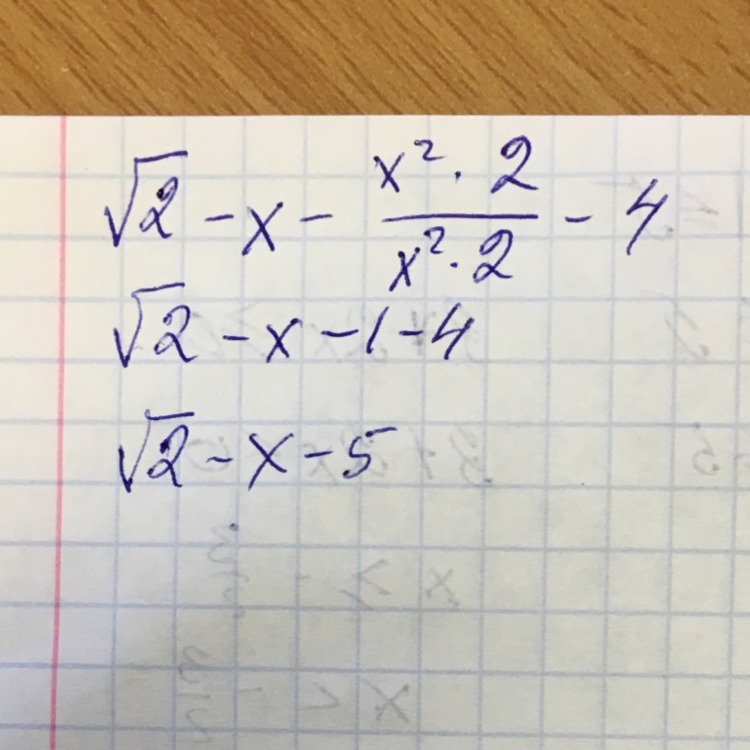 √2 - x - (x² · 2)/(x² · 2) - 4
√2 - x - 1 - 4
√2 - x - 5